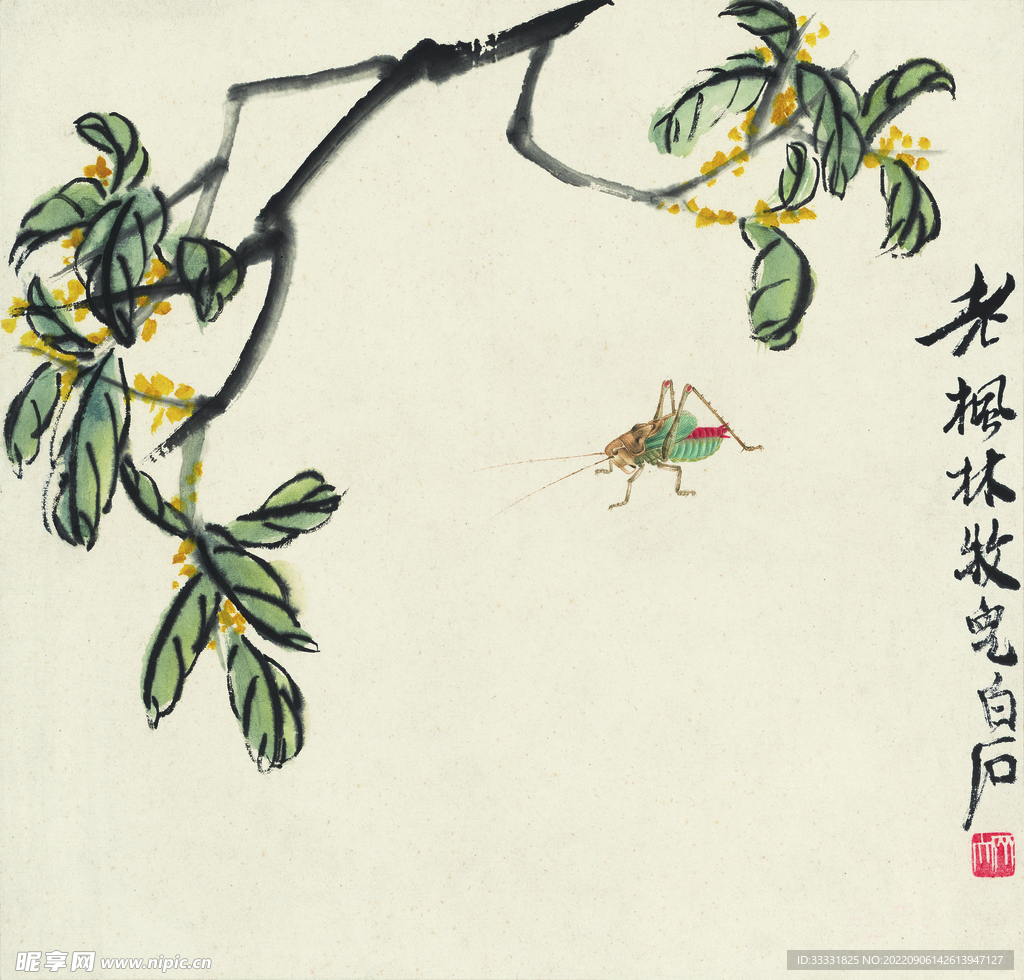 老楓林牧兒白石
昵享网 www.nipic.cn
ID:33331825 NO:20220906142613947127